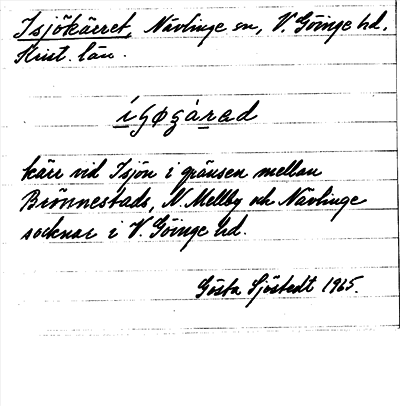 Isjökärret, Nävlinge sn, V. Göinge hd.
Krist. län.
kärr vid Isjön i gränsen mellan
Brönnestads, N. Mellby och Nävlinge
socknar i V. Göinge hd.
Gösta Sjöstedt 1965.